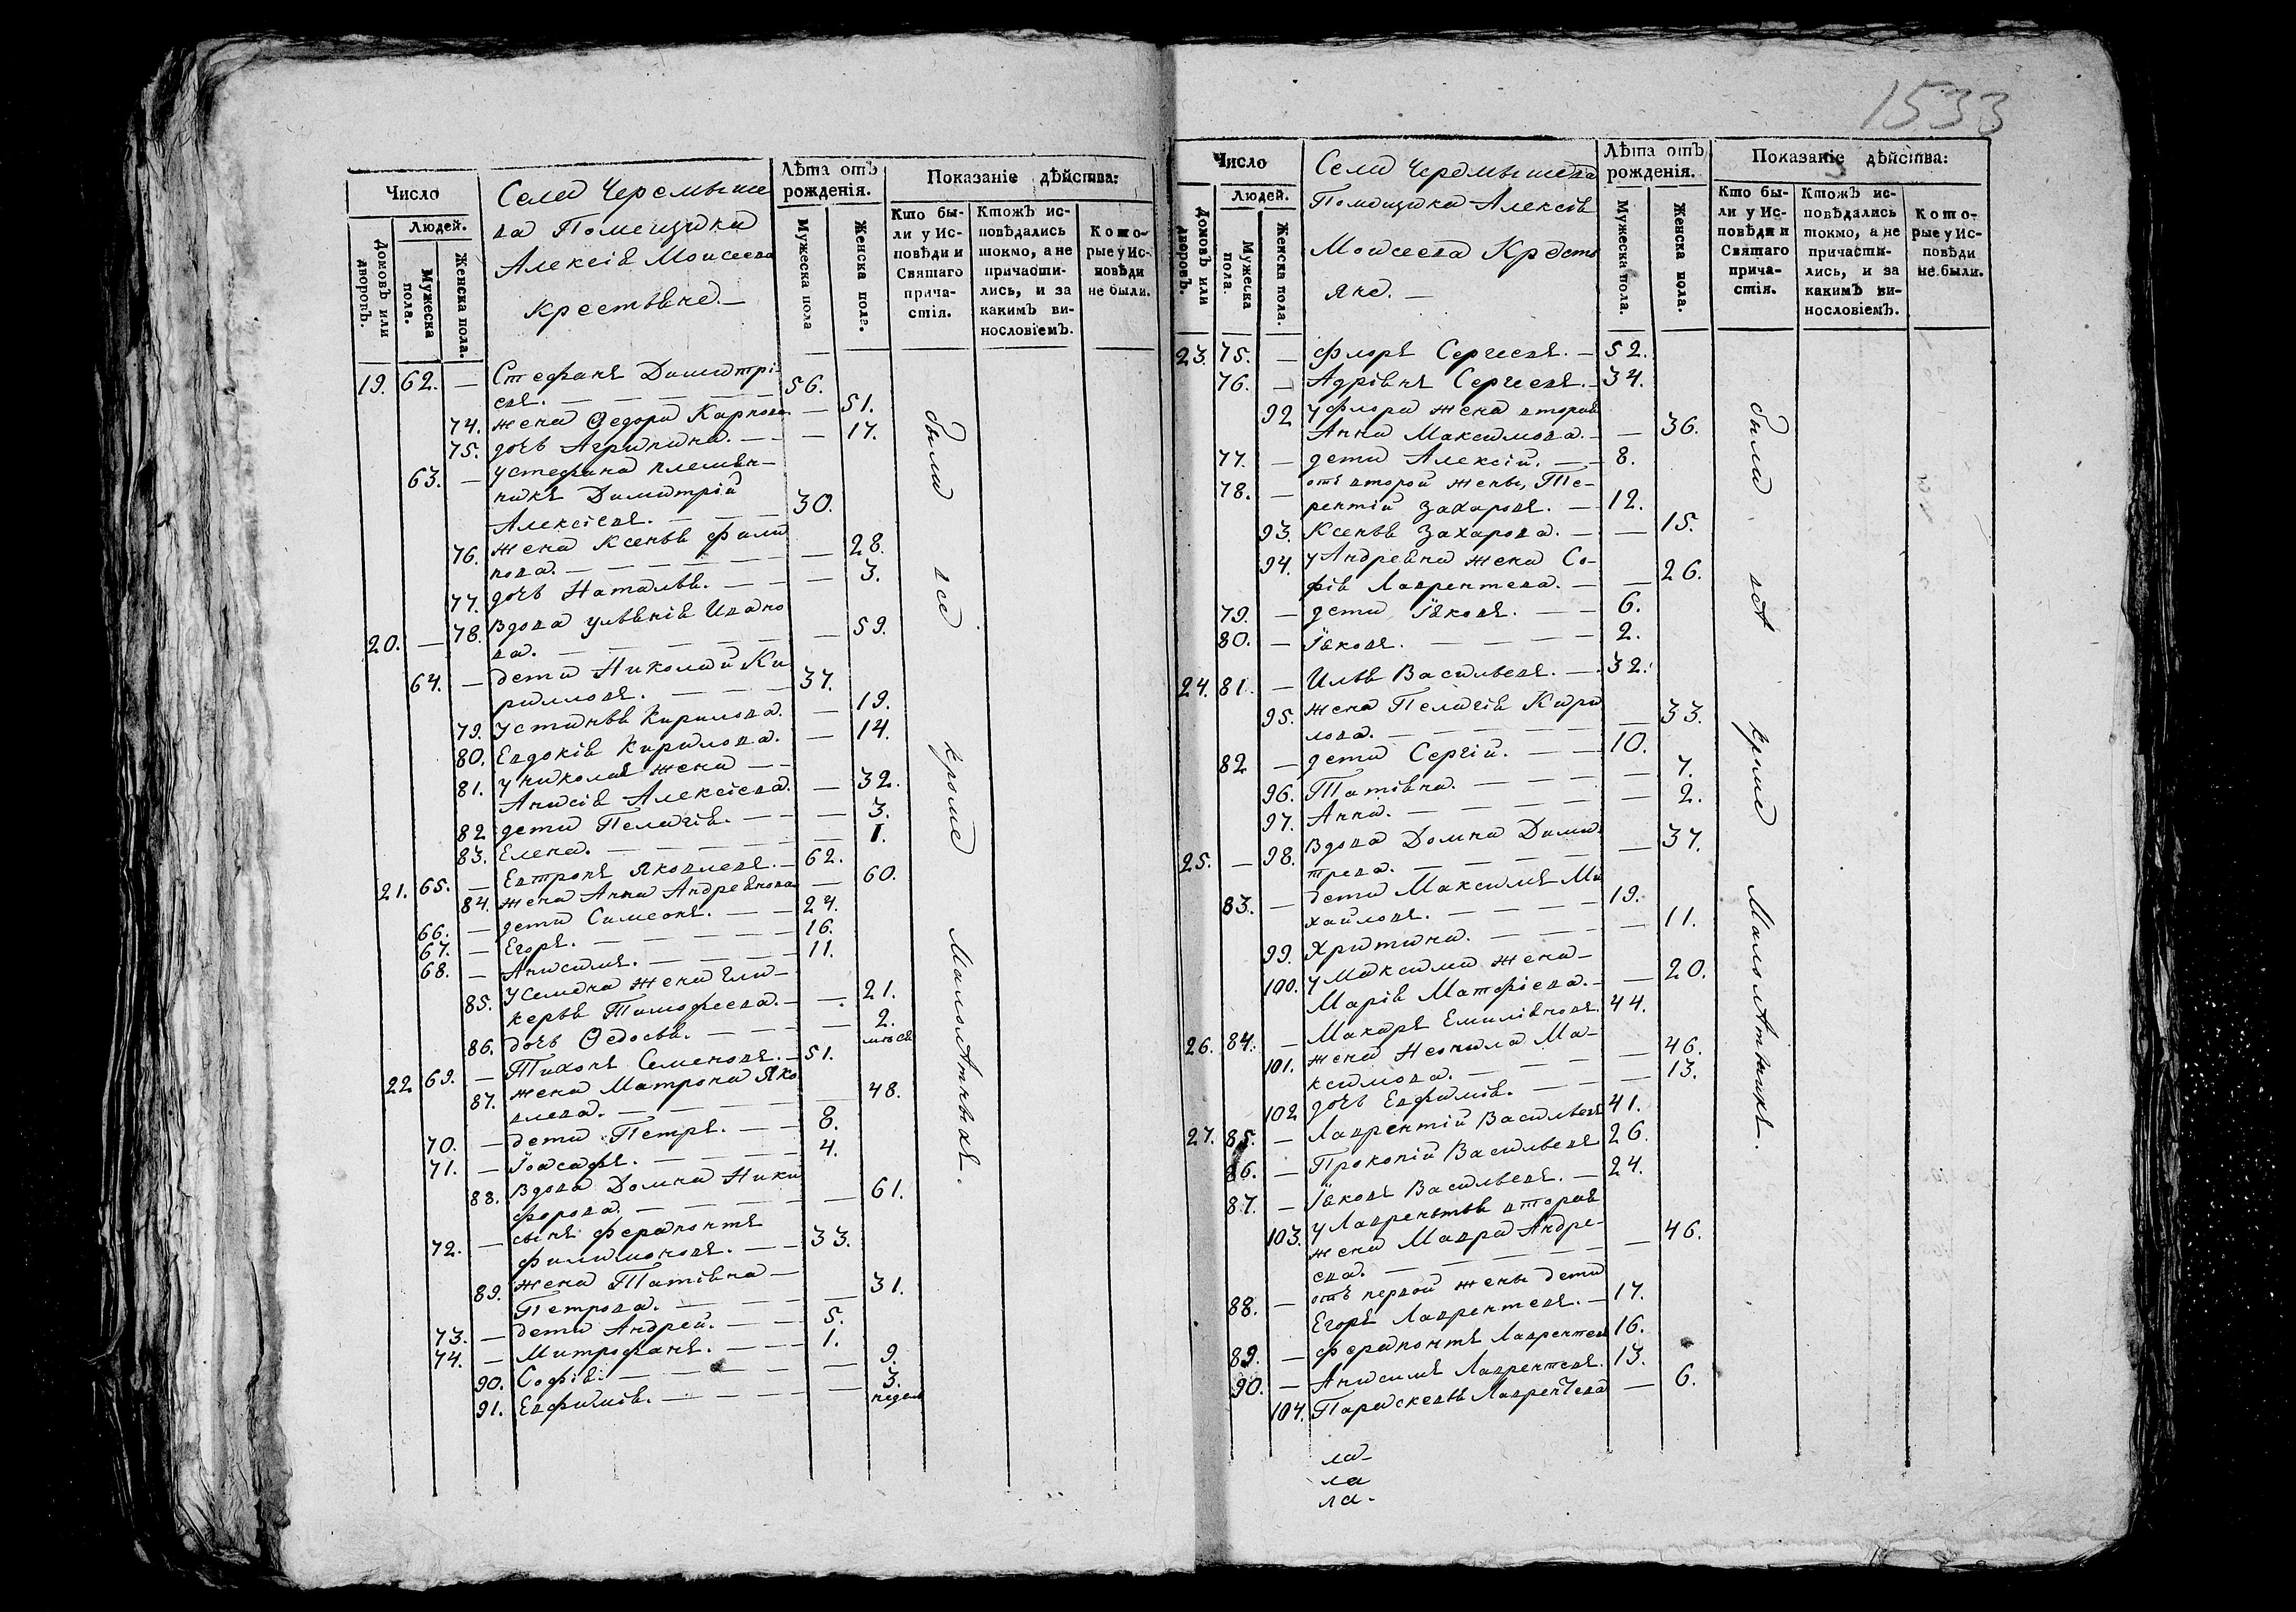 Число
Села Черемыше
ва Помещика
Алексія Моисеева
крестьяне. —
Лѣта отъ
рожденія.
Показаніе дѣйства:
Людей.
Домовъ или
дворовъ.
Мужеска
пола.
Женска пола.
Мужеска пола
Женска пола.
Кто бы-
ли у Ис-
повѣди и
Святаго
прича-
стія.
Ктожъ ис-
повѣдались
токмо, а не
причасти-
лись, и за
какимъ ви-
нословіемъ.
Кото-
рые у Ис-
повѣди
не были.
19. 62. — Стефанъ Димитрі
евъ. — — — — 56.
74. жена Ѳедора Карпова — 51.
75. дочь Агрипина. — — — 17.
63. — у стефана племян-
никъ Димитрій
Алексіевъ. — — — 30.
76. жена Ксенья фили
пова. — — — — — 28.
77. дочь Наталья. — — — 3.
20. — 78. Вдова ульянія Ивано
ва. — — — — — 59.
64. — дети Николай Ки
риловъ. — — — 37.
79. Устинья Кирилова. — 19.
80. Евдокія Кирилова. — 14.
81. у николая жена — —
Анисія Алексіева. — 32.
82 дети Пелагія. — — — 3.
83. Елена. — — — — — 1.
21. 65. — Евтропъ Яковлевъ. — 62.
84. жена Анна Андреянова — 60.
66. — дети Симеонъ. — — 24.
67. — Егоръ. — — — — 16.
68. — Анисимъ. — — — — 11.
85. у семена жена гли-
керья Тимофеева. — — 21.
86. дочь Ѳедосья. — — — — 2.
мнсц
22 69. — Тихонъ Семеновъ. — 51.
87. жена Матрона Яко
влева. — — — — — 48.
70. — дети Петръ. — — 8.
71. — Іоасафъ. — — — — 4.
88. Вдова Домна Ники
форова. — — — — — 61.
72. — сынъ ферапонтъ
филимоновъ. — — 33.
89. жена Татіяна —
Петрова. — — — — 31.
73. — дети Андрей. — — 5.
74. — Митрофанъ. — — 1.
90. Софія. — — — — — 9.
91. Евфимія. — — — — — 3.
недел
были все кроме Малолѣтныхъ.
1533
Число
Села Черемышева
Помещика Алексія
Моисеева Кресть
яне. —
Лѣта отъ
рожденія.
Показаніе дѣйства:
Людей.
Домовъ или
дворовъ.
Мужеска
пола.
Женска пола.
Мужеска пола.
Женска пола.
Кто бы-
ли у Ис-
повѣди и
Святаго
прича-
стія.
Ктожъ ис-
повѣдались
токмо, а не
причасти-
лись, и за
какимъ ви-
нословіемъ.
Кото-
рые у Ис-
повѣди
не были.
23 75. — флоръ Сергеевъ. — 52.
76. — Адріянъ Сергеевъ. — 34.
92 у флора жена вторая
Анна Максимова. — — 36.
77. — дети Алексій. — — 8.
78. — отъ второй жены, Те-
рентій Захаровъ. — 12.
93. Ксенья Захарова. — — 15.
94. у Андреяна жена Со-
фія Лаврентева. — — 26.
79. — дети Іяковъ. — — 6.
80. — Іяковъ. — — — — 2.
24. 81. — Илья Васильевъ. — 32.
95. жена Пелагія Кири
лова. — — — — — 33.
82 — дети Сергій. — — 10.
96. Татіяна. — — — — 7.
97. Анна. — — — — — 2.
25. — 98. Вдова Домна Дими
трева. — — — — — 37.
83. — дети Максимъ Ми
хайловъ. — — — — 19.
99. Христина. — — — — 11.
100. у Максима жена —
Марія Матфіева. — — 20.
26. 84. — Макаръ Емиліяновъ 44.
101. жена Неонила Ма-
ксимова. — — — — 46.
102 дочь Евфимія. — — — 13.
27. 85. — Лаврентій Васильевъ 41.
86. — Прокопій Васильевъ 26.
87. — Іяковъ Васильевъ. — 24.
103. у Лаврентья вторая
жена Мавра Андре-
ева. — — — — — 46.
88. — отъ первой жены дети
Егоръ Лаврентевъ. — 17.
89. — ферапонтъ Лаврентев 16.
90. — Анисимъ Лаврентевъ. 13.
104. Параскевья Лаврентева — 6.
были всѣ кроме Малолѣтныхъ.
ла-
ла
ла-